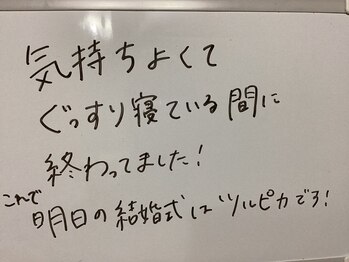 気持ちよくて
ぐっすり寝ている間に
終わってました!
これで
明日の結婚式はツルピカでろ!